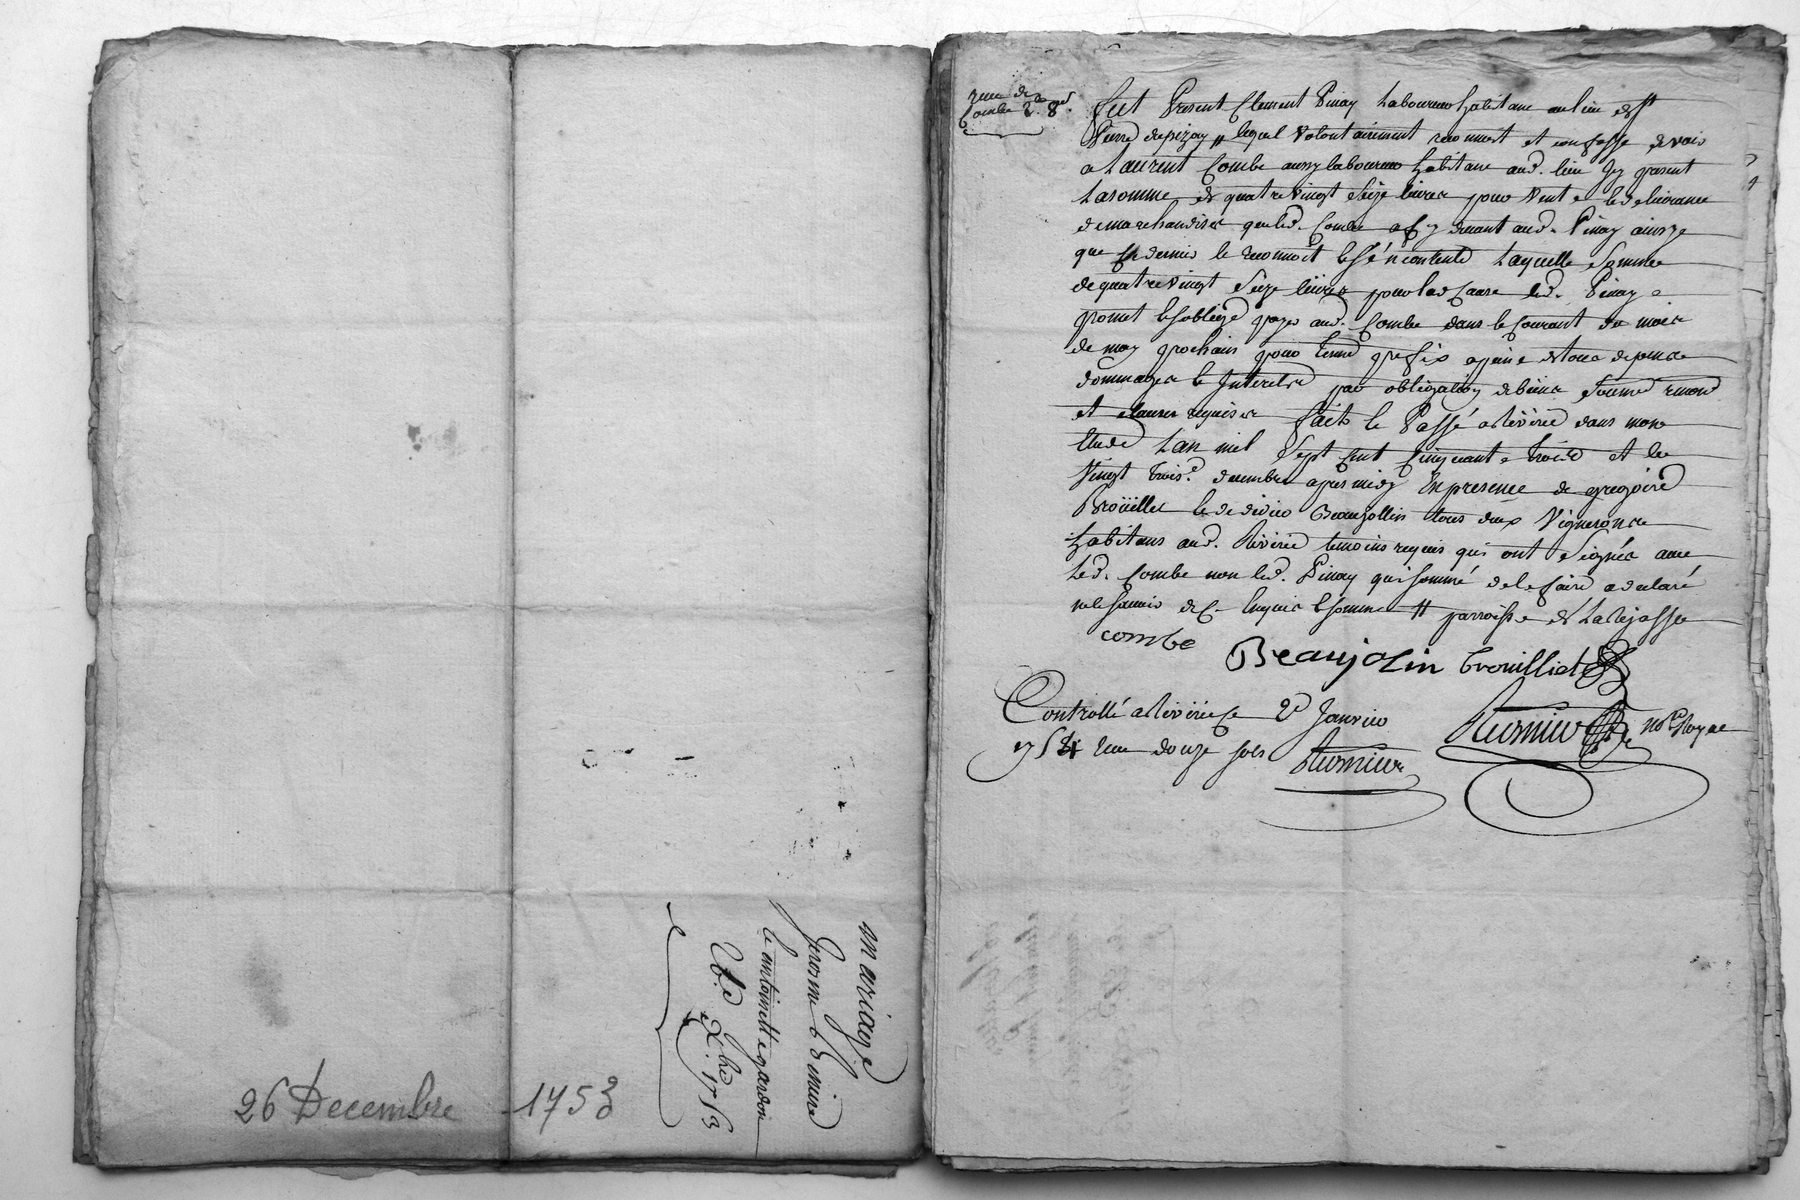 mariage
Jerosme
et antoinette gardon
26.e Xbre 1753
26 Decembre 1753
Combe
fut Present Clement Pinay Laboureur habitant au lieu de St
Pierre lequel volontairement reconnoit et confesse devoir
a Laurent Combe aussy laboureur habitant aud. lieu icy present
La somme de quatre vingt seize livres pour vente et delivrance
de marchandises que led. Combe a cy devant aud. Pinay ainsy
que ce dernier le reconnoit et s'en contente Laquelle somme
de quatre vingt seize livres pour lad. cause led. Pinay
promet et s'oblige payer aud. Combe dans le courant du mois
de may prochain pour terme prefix a peine de tous depens
dommages et Interests par obligation de biens
et clauses requises fait et Passé a Riverie dans mon
Etude Lan mil sept cent cinquante trois et le
Vingt trois.e decembre apres midy En presence de gregoire
Broüillet et de didier Beaujollin tous deux Vignerons
habitans aud. Riverie temoins requis qui ont signés avec
led. Combe non led. Pinay qui sommé de le faire a declaré
ne le savoir de ce Enquis et sommé // parroisse de La Rajasse
combe
Beaujolin brouilliet
Controllé a Riverie ce 2e Janvier
1754 Reçu douze sols
no.re Royal